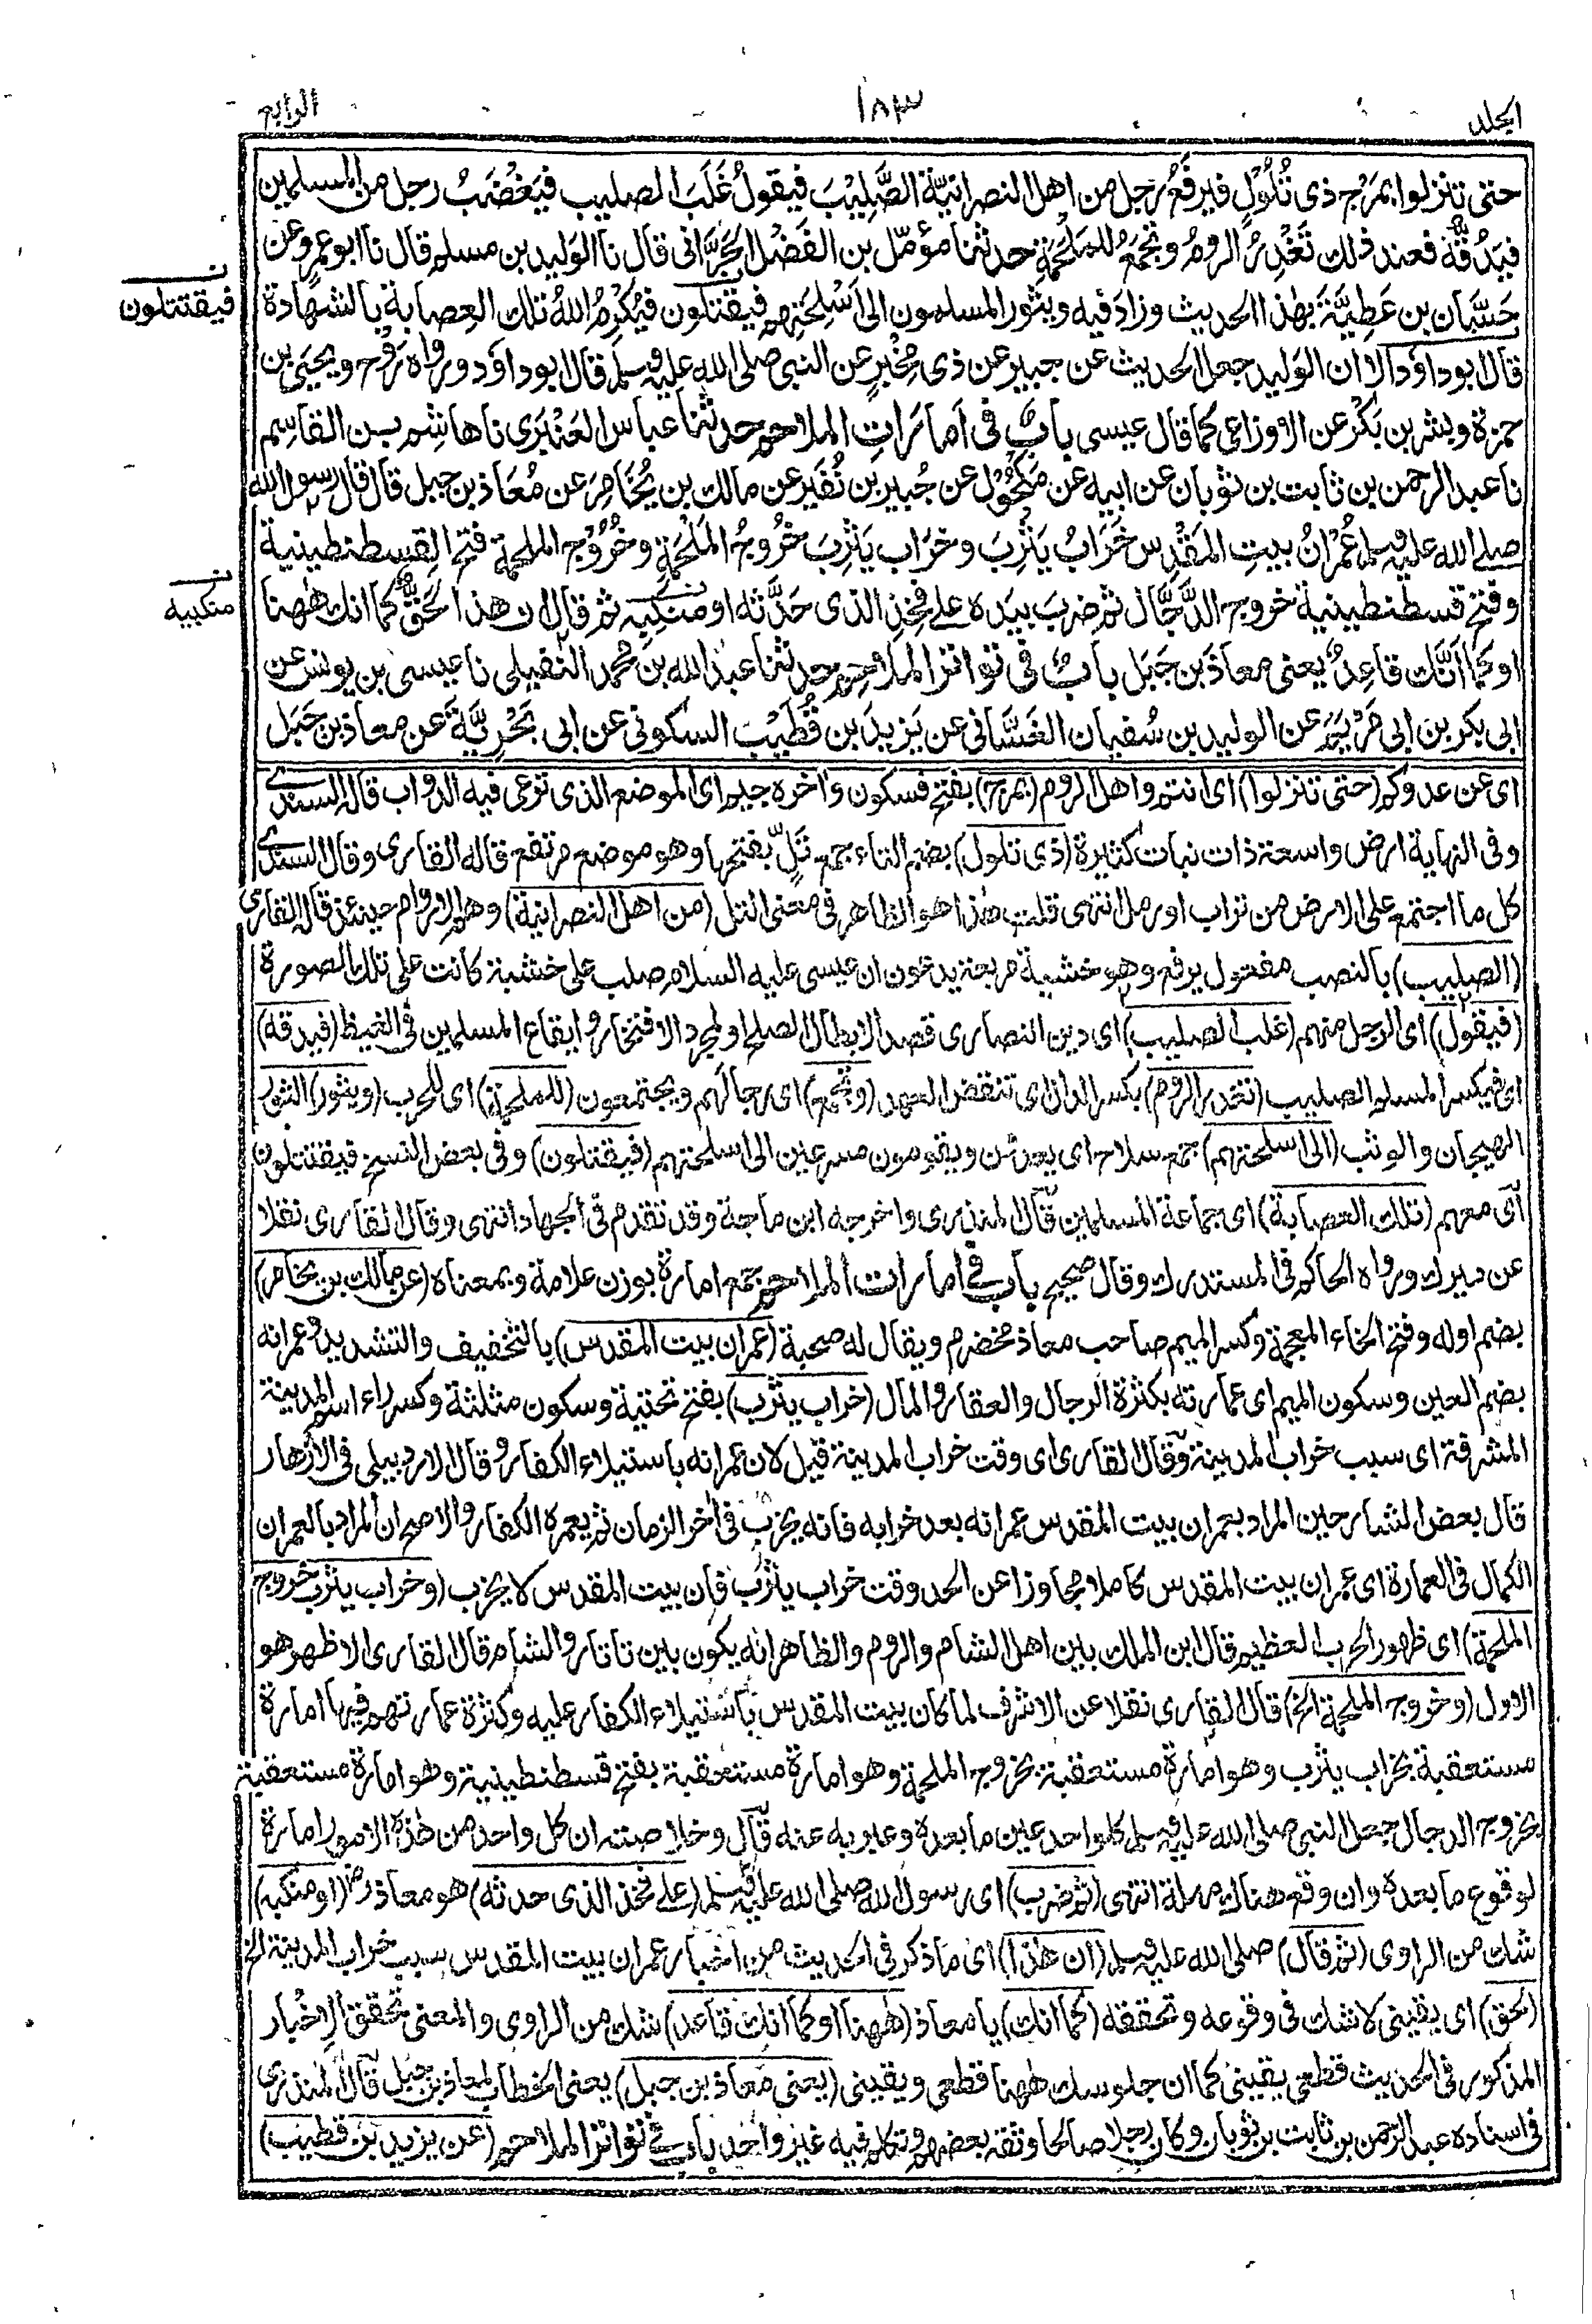 الجلد
١٨٣
الرابع
حتى تنزلوا بمَرْجٍ ذى تُلُوْلٍ فيرفعُ رجل من اهل النصرانيّة الصَّلِيْبَ فيقولُ غَلَبَ الصليب فيَغْضَبُ رجل من المسلمين
فيَدُقُّهُ فعند ذلك تَغْدِرُ الرومُ وتَجْمَعُ للمَلْحَمَةِ حدثنا مؤمّل بن الفَضْل الحَرَّانى قال نا الوَليد بن مسلم قال نا ابو عَمْرٍو عن
حَسَّان بن عَطِيَّةَ بهٰذا الحديث وزادَ فيه ويثور المسلمون الى اَسْلِحَتِهم فيقتلون فيُكْرِمُ اللهُ تلك العِصابة بالشهادة
فيقتتلون
قال ابوداؤد الا ان الوَليد جعل الحديث عن جبير عن ذى مِخْبَرٍ عن النبى صلى الله عليه وسلم قال ابوداؤد ورواه رَوْح ويحيَى بن
حمزة وبشر بن بَكْر عن الاوزاعى كما قال عيسى بابٌ فى اَمَارَاتِ الملاحم حدثنا عباس العَنْبَرى نا هاشِم بن القاسِم
نا عبد الرحمٰن بن ثابت بن ثوبان عن ابيه عن مَكْحُوْل عن جُبير بن نُفَير عن مالك بن يُخَامِرَ عن مُعَاذ بن جبل قال قال رسول الله
صلى الله عليه وسلم عُمْرَانُ بيتِ المَقْدِس خَرَابُ يَثْرِبَ وخَرَاب يَثْرِبَ خُروجُ المَلْحَمَةِ وخُرُوْجُ الملحمة فتح القسطنطينية
وفتح قسطنطينية خروج الدَّجَّال ثم ضربَ بيَدِه على فَخِذِ الذى حَدَّثه او منكبه ثم قال ان هذا لَحَقٌّ كما انك هٰهنا
منكبيه
او كما اَنَّك قاعِدٌ يعنى معاذَ بن جَبَل بابٌ فى تواتر الملاحم حدثنا عبد الله بن محمد النفيلى نا عيسى بن يونس عن
ابى بكر بن ابى مَرْيَمَ عن الوليد بن سُفيان الغَسَّانى عن يَزيدَ بن قُطَيْبٍ السكونى عن ابى بَحْرِيَّةَ عن معاذ بن جَبَل
اى عن عدوكم (حتى تنزلوا) اى انتم واهل الروم (بمرج) بفتح فسكون واٰخره جيم اى الموضع الذى ترعى فيه الدواب قاله السندى
وفى النهاية ارض واسعة ذات نبات كثيرة (ذى تلول) بضم التاء جمع تَلٍّ بفتحها وهو موضع مرتفع قاله القارى وقال السندى
كل ما اجتمع على الارض من تراب او رمل انتهى قلت هٰذا هو الظاهر فى معنى التل (من اهل النصرانية) وهم الاروام حينئذ قاله القارى
(الصليب) بالنصب مفعول يرفع وهو خشبة مربعة يدعون ان عيسى عليه السلام صلب على خشبة كانت على تلك الصورة
(فيقول) اى الرجل منهم (غلب الصليب) اى دين النصارى قصدا لابطال الصلح او لمجرد الافتخار وايقاع المسلمين فى الغيظ (فيدقه)
اى فيكسر المسلم الصليب (تغدر الروم) بكسر الدال اى تنقض العهد (وتجمع) اى رجالهم ويجتمعون (للملحمة) اى للحرب (ويثور) الثور
الهيجان والوثب (الى اسلحتهم) جمع سلاح اى يعدون ويقومون مسرعين الى اسلحتهم (فيقتلون) وفى بعض النسخ فيقتتلون
اى معهم (تلك العصابة) اى جماعة المسلمين قال المنذرى واخرجه ابن ماجة وقد تقدم فى الجهاد انتهى وقال القارى نقلا
عن ميرك ورواه الحاكم فى المستدرك وقال صحيح باب فى امارات الملاحم جمع امارة بوزن علامة وبمعناه (عن مالك بن يخامر)
بضم اوله وفتح الخاء المعجمة وكسر الميم صاحب معاذ مخضرم ويقال له صحبة (عمران بيت المقدس) بالتخفيف والتشديد وعمرانه
بضم العين وسكون الميم اى عمارته بكثرة الرجال والعقار والمال (خراب يثرب) بفتح تحتية وسكون مثلثة وكسر راء اسم المدينة
المشرفة اى سبب خراب المدينة وقال القارى اى وقت خراب المدينة قيل لان عمرانه باستيلاء الكفار وقال الاردبيلى فى الازهار
قال بعض الشارحين المراد بعمران بيت المقدس عمرانه بعد خرابه فانه يخرب فى اٰخر الزمان ثم يعمره الكفار والاصح ان المراد بالعمران
الكمال فى العمارة اى عمران بيت المقدس كاملا مجاوزا عن الحد وقت خراب يثرب فان بيت المقدس لا يخرب (وخراب يثرب خروج
الملحمة) اى ظهور الحرب العظيم قال ابن الملك بين اهل الشام والروم والظاهر انه يكون بين تاتار والشام قال القارى الاظهر هو
الاول (وخروج الملحمة الخ) قال القارى نقلا عن الاشرف لما كان بيت المقدس باستيلاء الكفار عليه وكثرة عمارتهم فيها امارة
مستعقبة بخراب يثرب وهو امارة مستعقبة بخروج الملحمة وهو امارة مستعقبة بفتح قسطنطينية وهو امارة مستعقبة
بخروج الدجال جعل النبى صلى الله عليه وسلم كلواحد عين ما بعده وعبر به عنه قال وخلاصته ان كل واحد من هٰذه الامور امارة
لوقوع ما بعده وان وقع هناك مهلة انتهى (ثم ضرب) اى رسول الله صلى الله عليه وسلم (على فخذ الذى حدثه) هو معاذ رض (او منكبه)
شك من الراوى (ثم قال) صلى الله عليه وسلم (ان هٰذا) اى ما ذكر فى الحديث من اخبار عمران بيت المقدس سبب خراب المدينة الخ
(لحق) اى يقينى لا شك فى وقوعه وتحققه (كما انك) يا معاذ (هٰهنا او كما انك قاعد) شك من الراوى والمعنى تحقق الاخبار
المذكور فى الحديث قطعى يقينى كما ان جلوسك هٰهنا قطعى ويقينى (يعنى معاذ بن جبل) يعنى الخطاب لمعاذ بن جبل قال المنذرى
فى اسناده عبد الرحمٰن بن ثابت بن ثوبان وكان رجلا صالحا وثقه بعضهم وتكلم فيه غير واحد باب فى تواتر الملاحم (عن يزيد بن قطيب)